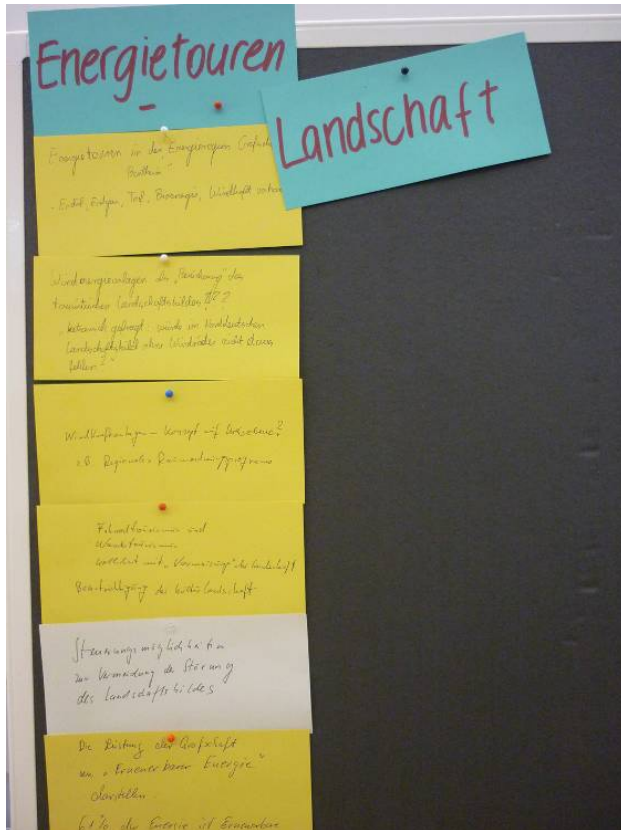 Energietouren
-
Landschaft
Energietouren in der Energieregion Grafschaft
Bentheim"
- Erdöl, Erdgas, Torf, Bioenergie, Windkraft
Windenergieanlagen als „Bereicherung" des
touristischen Landschaftsbildes
ketzerisch gefragt: würde im norddeutschen
Landschaftsbild ohne Windräder nicht etwas
fehlen?"
Windkraftanlagen – Konzept mit
z.B. Regionales Raumordnungsprogramm
Fahrradtourismus und
Wandertourismus
kollidiert mit „Vermaisung" der Landschaft
Beeinträchtigung der Kulturlandschaft
Steuerungsmöglichkeiten
zur Vermeidung der Störung
des Landschaftsbildes
Die Leistung der Grafschaft
an „Erneuerbarer Energie"
darstellen.
der Energie ist Erneuerbare